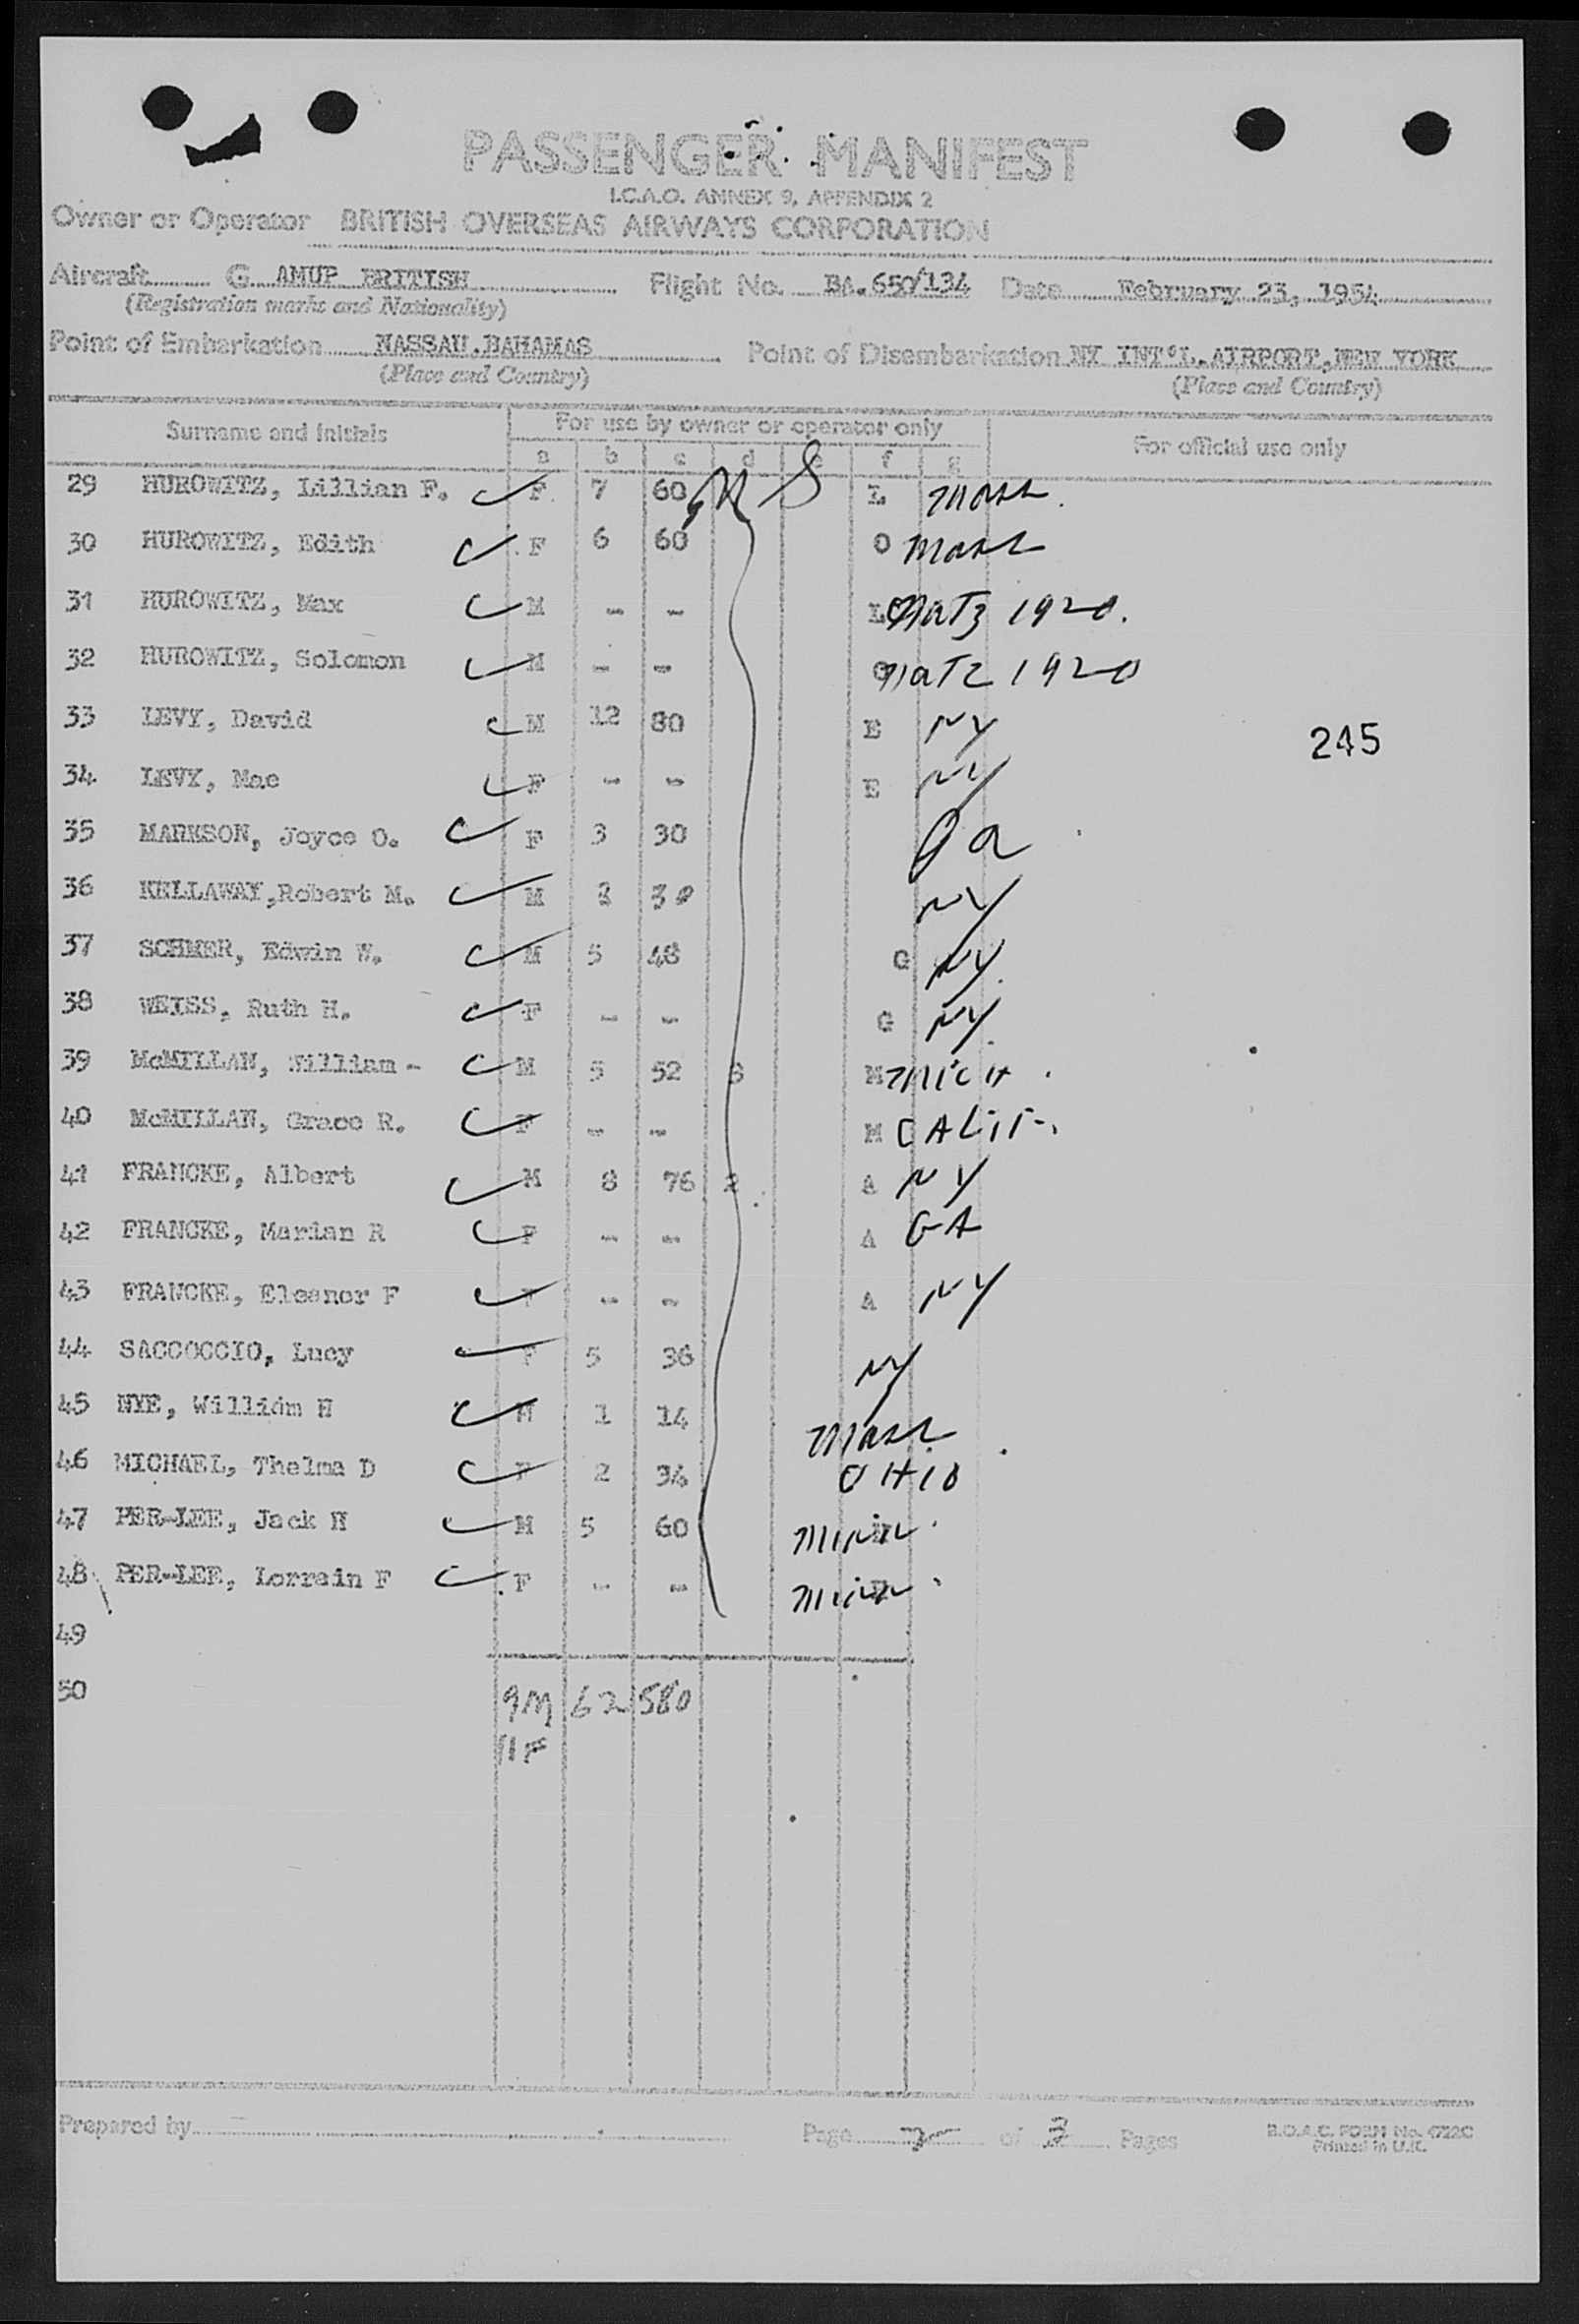 PASSENGER MANIFEST
I.C.A.O. ANNEX 9, APPENDIX 2
Owner or Operator BRITISH OVERSEAS AIRWAYS CORPORATION
Aircraft G AMUP BRITISH Flight No. BA.650/134 Date February 23, 1954
(Registration marks and Nationality)
Point of Embarkation NASSAU.BAHAMAS Point of Disembarkation NY INT'L.AIRPORT,NEW YORK
(Place and Country) (Place and Country)
Surname and initials For use by owner or operator only For official use only
a b c d e f g
29 HUROWITZ, Lillian F. F 7 60 U S L Mass.
30 HUROWITZ, Edith F 6 60 O Mass
31 HUROWITZ, Max M - - L Natz 1920.
32 HUROWITZ, Solomon M - - O Natz 1920
33 LEVY, David M 12 80 E NY
245
34 LEVY, Mae F - - E NY
35 MARKSON, Joyce O. F 3 30 Ga
36 KELLAWAY,Robert M. M 3 30 NY
37 SCHMER, Edwin W. M 5 48 G NY.
38 WEISS, Ruth H. F - - G NY.
39 McMILLAN, William - M 5 52 3 M Mich.
40 McMILLAN, Grace R. F - - M CALIF.
41 FRANCKE, Albert M 8 76 2 A NY
42 FRANCKE, Marian R F - - A GA
43 FRANCKE, Eleanor F F - - A NY
44 SACCOCCIO, Lucy F 5 36 NY
45 NYE, William H M 1 14 Mass.
46 MICHAEL, Thelma D F 2 34 OHIO
47 PER-LEE, Jack H M 5 60 Minn.
48 PER-LEE, Lorrain F F - - Minn.
49
50 9M 62 580
11F
Prepared by Page 2 of 3 Pages B.O.A.C. FORM No. 4722C
Printed in U.K.